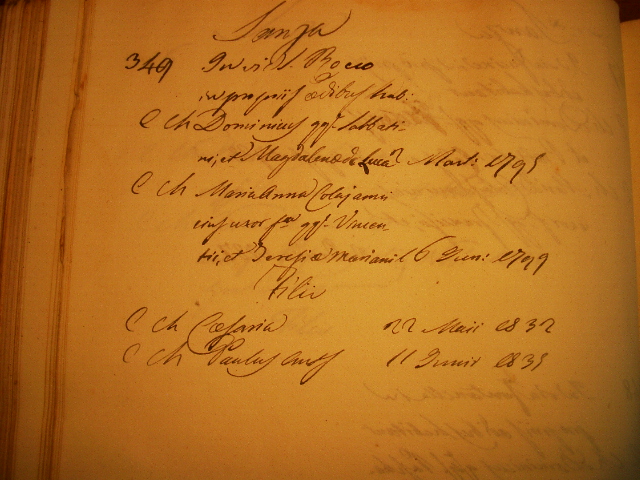 Sanza
349 In vico S. Rocco
in propriis ædibus hab:
C Ch Dominicus qq.s Sabbati-
ni, et Magdalenæ de Luca Mart: 1795
C Ch Maria Anna Colajanni
eius uxor qq.s Vincen
tii, et Teresiæ Mariani 16 Jun: 1799
Filii
C Ch Cæsaria 22 Maii 1832
C Ch Paulus 11 Junii 1835